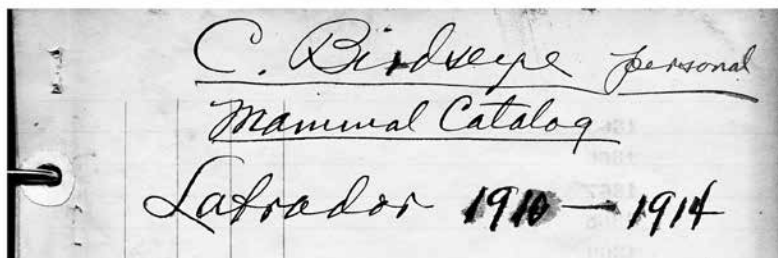 C. Birdseye personal
Mammal Catalog
Labrador 1910 — 1914